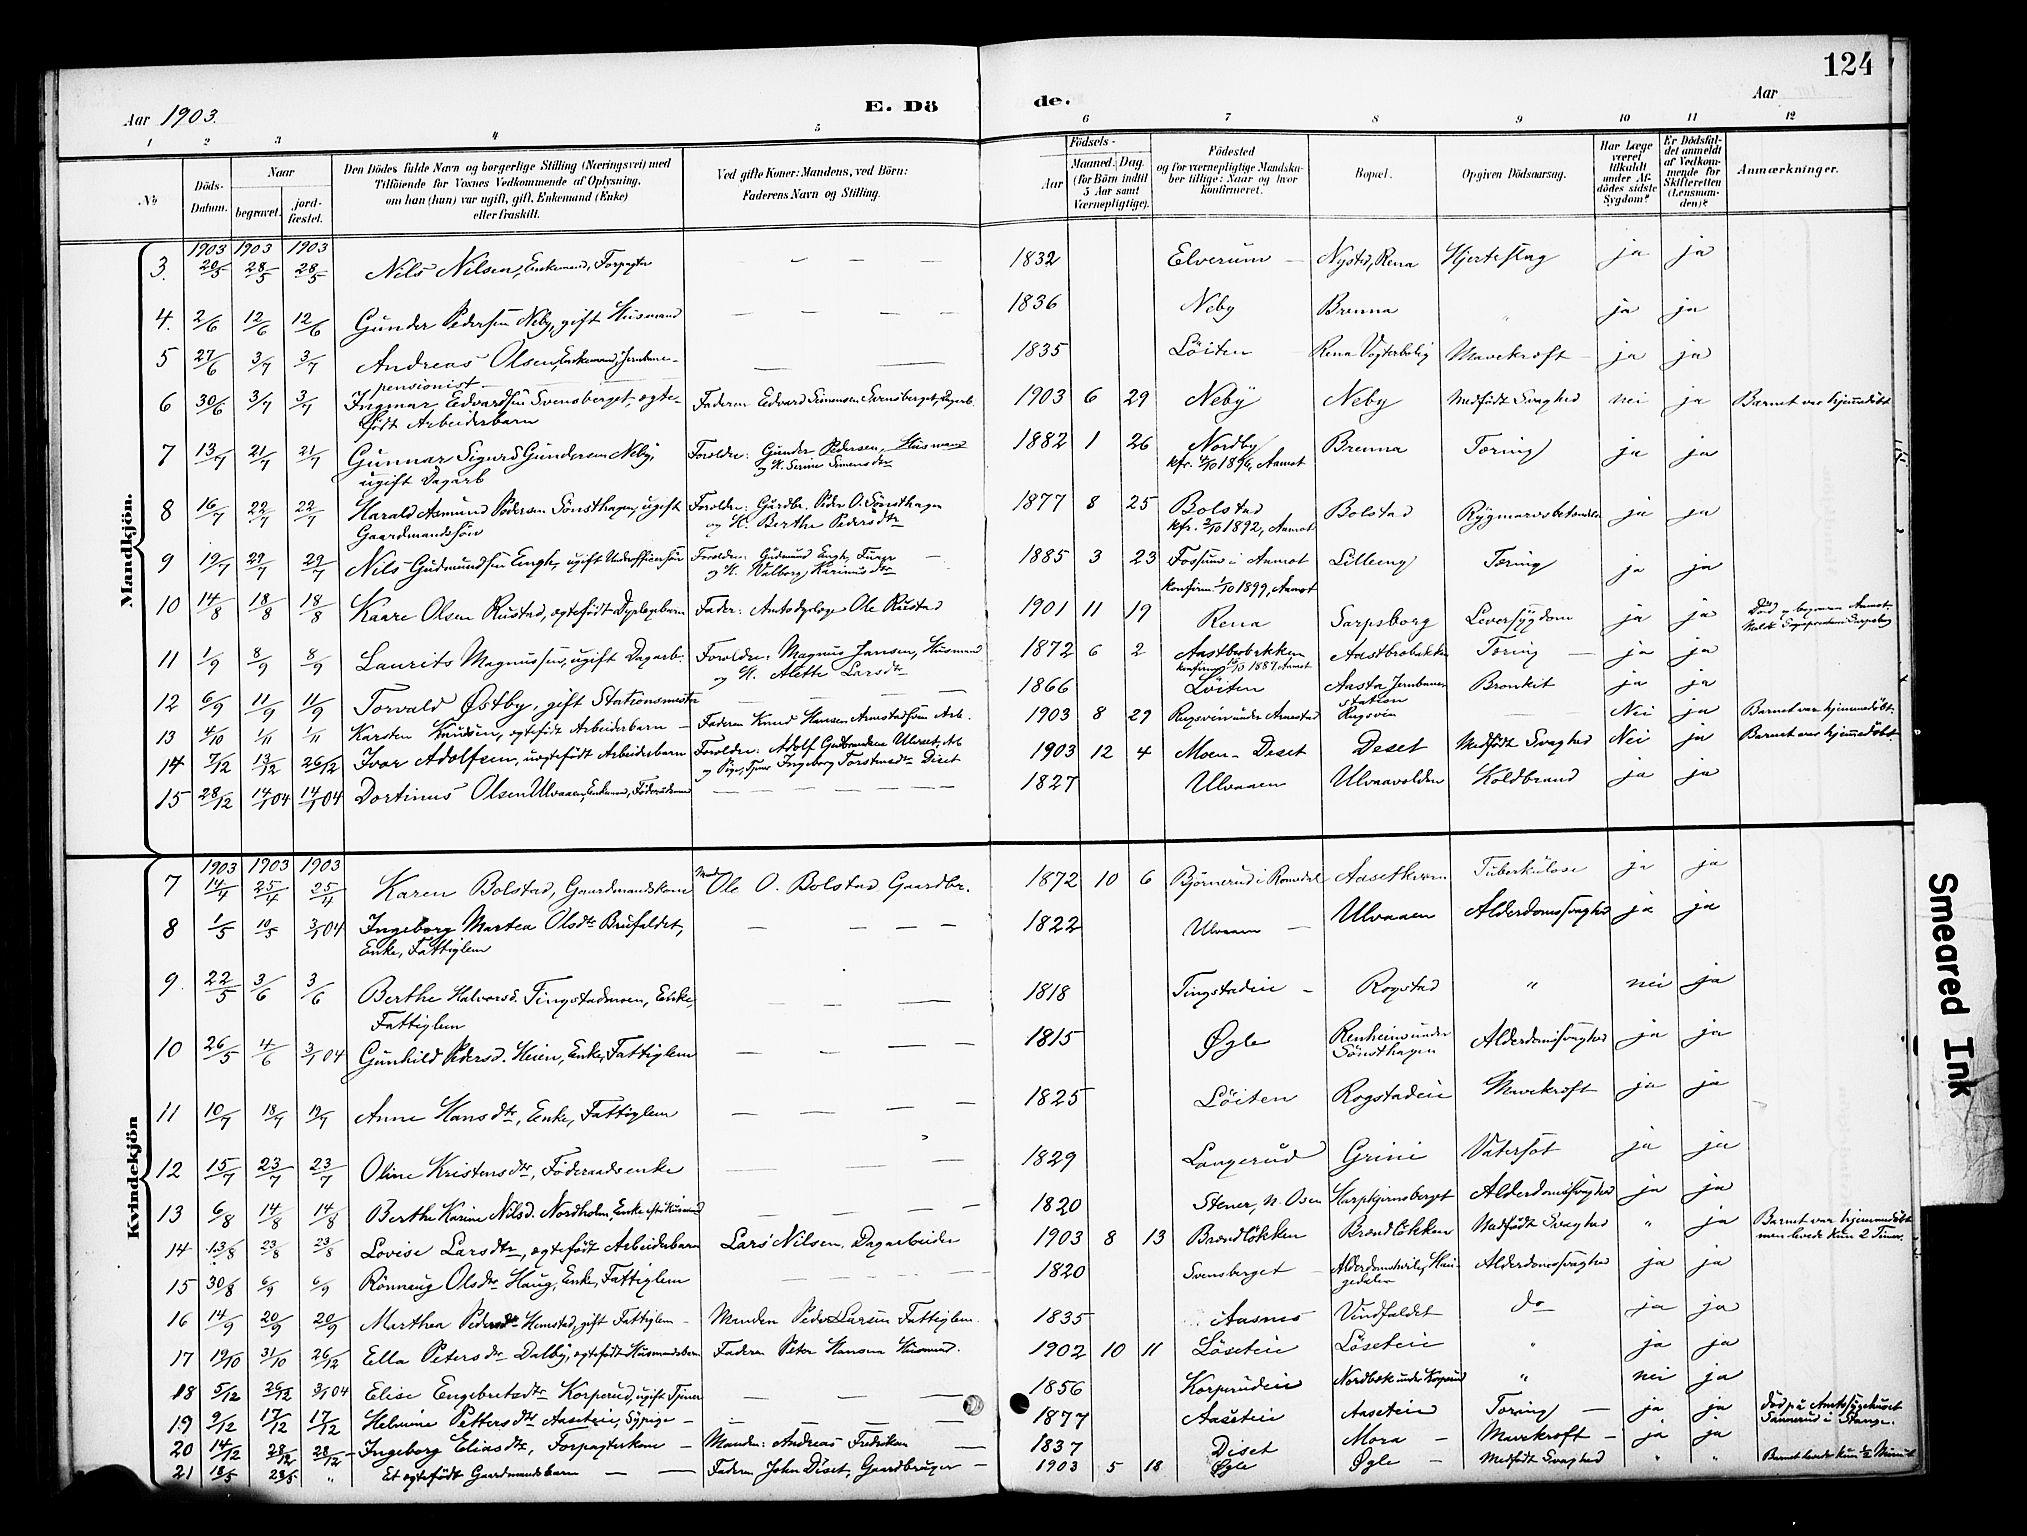 124
Aar 1903.
E. Dö de.
Aar
1 2 3 4 5 6 7 8 9 10 11 12
No
Döds-Datum.
Naar
begravet.
jord-fæstet.
Den Dödes fulde Navn og borgerlige Stilling (Næringsvei) med
Tilföiende for Voxnes Vedkommende af Oplysning,
om han (hun) var ugift, gift, Enkemand (Enke)
eller fraskilt.
Ved gifte Koner: Mandens, ved Börn:
Faderens Navn og Stilling.
Födsels-
Aar
Maaned. Dag.
(for Börn indtil
5 Aar samt
Værnepligtige).
Födested
og for værnepligtige Mandska-
ber tillige: Naar og hvor
konfirmeret.
Bopæl.
Opgiven Dödsaarsag.
Har Læge
været
tilkaldt
under Af-
dödes sidste
Sygdom?
Er Dödsfal-
det anmeldt
af Vedkom-
mende for
Skifteretten
(Lensman-
den)?
Anmærkninger.
Mandkjön.
1903 1903 1903
3. 20/5 28/5 28/5 Nils Nilsen, Enkemand, Forpagter — — — 1832 Elverum — Nysted, Rena Hjerteslag ja ja
4. 2/6 12/6 12/6 Gunder Pedersen Neby, gift Husmand — — — — 1836 Neby Brenna " ja ja
5 27/6 3/7 3/7 Andreas Olsen, Enkemand, Jernbane-
pensionist — — — 1835 Löiten — Rena Vogterbolig Mavekræft — ja ja
6 30/6 3/7 3/7 Ingmar Edvardsen Svensberget, ægte-
født Arbeiderbarn Faderen Edvard Simensen Svensberget, Dagarb. 1903 6 29 Neby Neby Medfødt Svaghed nei ja Barnet var hjemmedøbt
7 13/7 21/7 21/7 Gunnar Sigurd Gundersen Neby,
ugift Dagarb Foreldre: Gunder Pedersen, Husmand
og H. Serine Simensdtr 1882 1 26 Nordby
Brenna Tæring ja ja
8 16/7 22/7 22/7 Harald Asmund Pedersen Sønsthagen, ugift
Gaardmandssøn Foreldre: Gardbr. Peder O. Sønsthagen
og H. Berthe Pedersdtr 1877 8 25 Bolstad
kfr. 2/10 1892, Aamot Bolstad ja ja
9 19/7 29/7 29/7 Nils Gudmundsen Engh, ugift Underofficersøn Foreldre: Gudmund Engh,
og H. Walborg Karinusdtr 1885 3 23 Fossum i Aamot
konfirm. 1/10 1899, Aamot Lilleeng Tæring ja ja
10 14/8 18/8 18/8 Kaare Olsen Rustad, ægtefødt Dyrlægebarn Fader: Amtsdyrlæge Ole Rustad 1901 11 19 Rena Sarpsborg Leversygdom ja ja
11 1/9 8/9 8/9 Laurits Magnussen, ugift Dagarb. Foreldre: Magnus Jansen, Husmand
og H. Alette Larsdtr 1872 6 2 Aastbrobækken
Aastbrobækken Tæring — ja ja
12 6/9 11/9 11/9 Torvald Østby, gift Stationsmester — — — 1866 Löiten Aasta Jernbane-
station Bronkit ja ja
13 4/10 1/11 1/11 Karsten Knudsen, ægtefødt Arbeiderbarn — Faderen Knud Hansen Arb. 1903 8 29 Rugsveen Nei ja Barnet var hjemmedøbt.
14 7/12 13/12 26/12 Ivar Adolfsen, uægtefødt Arbeiderbarn Foreldre: Adolf Gudbrandsen Ulvset, Arb
og Pige, Tjener Ingeborg Torstensdtr Diset 1903 12 4 Moen — Deset Deset Medfødt Svaghed Nei ja Barnet var hjemmedøbt.
15 28/12 14/1 04 14/1 04 Dortinus Olsen Ulvaaen, Enkemand, Föderaadsmand — — — — — 1827 Ulvaaen Ulvaavolden Koldbrand ja ja
Kvindekjön
1903 1903 1903
7 14/4 25/4 25/4 Karen Bolstad, Gaardmandskone Mand Ole O. Bolstad Gaardbr. 1872 10 6 Bjørnerud i Romedal Aasetkvern Tuberkulose ja ja
8 1/5 10/5 3/1 04 Ingeborg Martea Olsdtr Brufaldet,
Enke, Fattiglem — — — — 1822 Ulvaaen — Ulvaaen Alderdomssvaghed ja ja
9. 22/5 3/6 3/6 Berthe Halvorsd. Tingstadmoen, Enke,
Fattiglem — — — 1818 Tingstadeie — Rogstad " nei ja
10 26/5 4/6 3/1 04 Gunhild Pedersd. Heien, Enke, Fattiglem — — — — 1815 Øgle Renheim under
Sönsthagen Alderdomssvaghed ja ja
11 10/7 18/7 19/7 Anne Hansdtr, Enke, Fattiglem — — — — 1825 Löiten Rogstadeie Mavekræft ja ja
12 15/7 23/7 23/7 Oline Kristensdtr, Föderaadsenke — — — 1829 Langerud Grini Vatersot ja ja
13 6/8 14/8 14/8 Berthe Karine Nilsd. Nordholm, Enke efter Husmand — — — — 1820 Stener, N. Osen Harpkjernsberget Alderdomssvaghed ja ja
14 13/8 23/8 23/8 Lovise Larsdtr, ægtefødt Arbeiderbarn Lars Nilsen, Dagarbeider 1903 8 13 Brændløkken Brændløkken Medfødt Svaghed " ja Barnet var hjemmedøbt
men levede kun 2 Timer.
15 30/8 6/9 6/9 Rönnaug Olsdtr Haug, Enke, Fattiglem — — — — 1820 Svensberget — Alderdomssvaghed ja ja
16 14/9 20/9 20/9 Marthea Pedersdtr Hemstad, gift Fattiglem — Manden Peder Larsen Fattiglem. 1835 Aasnes Vindfaldet do ja ja
17 19/10 31/10 26/12 Ella Petersdtr Dalby, ægtefødt Husmandsbarn Faderen Peter Hansen Husmand. 1902 10 11 Løseteie Løseteie " ja ja
18 5/12 26/12 3/1 04 Elise Engebretsdtr Korperud, ugift Tjener — — — 1856 Korperudeie Nordbæk under Korperud " nei ja
19 9/12 17/12 17/12 Helmine Pettersdtr Aaseteie, Sypige — — — — 1877 Aaseteie Aaseteie Tæring — ja ja Død på Amtssygehuset
Sannerud i Stange.
20 14/12 28/12 28/12 Ingeborg Eliasdtr, Forpagterkone — Manden: Andreas Fredriksen — 1837 Diset Mora — Mavekræft — ja ja
21 18/5 28/5 " Et ægtefødt Gaardmandsbarn — — Faderen John Diset, Gaardbruger — 1903 5 18 Øgle Øgle — Medfødt Svaghed " " Barnet levede kun 1/2 Minut
Smeared Ink